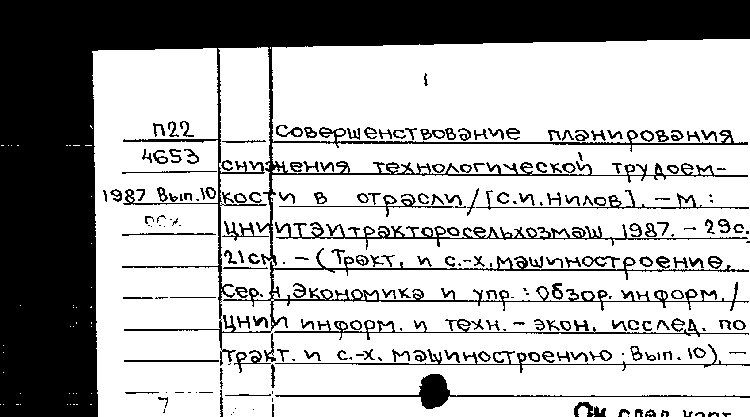 1
П22 Совершенствование планирования
4653 снижения технологической трудоем-
1987 Вып.10 кости в отрасли/[С.И.Нилов]. – М.:
ЦНИИТЭИтракторосельхозмаш, 1987. – 29с.
21см. – (Тракт. и с.-х. машиностроение.
Сер. , Экономика и упр.: Обзор. информ./
ЦНИИ информ. и техн.-экон. исслед. по
тракт. и с.-х. машиностроению; Вып. 10). –
7
См след карт